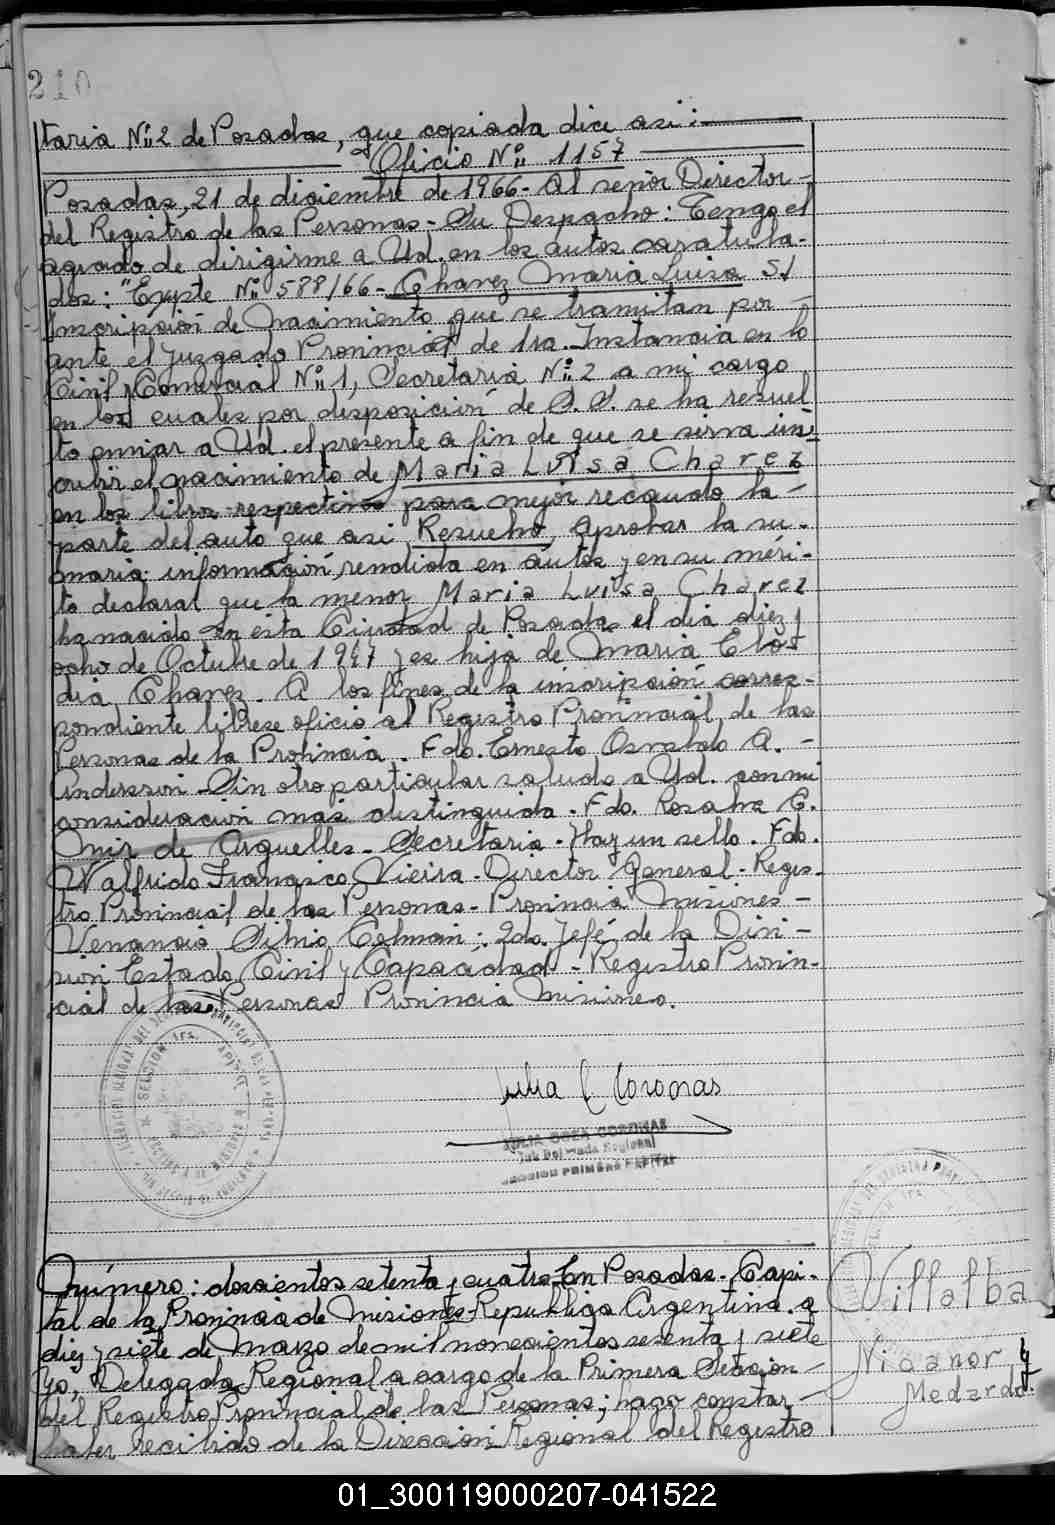 210
taria Nº 2 de Posadas, que copiada dice asi:
"Oficio Nº 1157
Posadas, 21 de diciembre de 1966 - Al señor Director -
del Registro de las Personas - Su Despacho: Tengo el
agrado de dirigirme a Ud. en los autos caratula-
dos: "Expte Nº 588/66 - Chavez Maria Luisa S/
Inscripción de Nacimiento que se tramitan por -
ante el Juzgado Provincial de 1ra. Instancia en lo
Civil y Comercial Nº 1, Secretaria Nº 2 a mi cargo
en los cuales por disposición de S.S. se ha resuel
to enviar a Ud. el presente a fin de que se sirva ins-
cribir el nacimiento de Maria Luisa Chavez
en los libros respectivos para mejor recaudo la -
parte del auto que asi Resuelvo, Aprobar la su-
maria información rendida en autos y en su méri-
to declarar que la menor Maria Luisa Chavez
ha nacido en esta Ciudad de Posadas el dia diez y
ocho de Octubre de 1947 y es hija de Maria Elo-
dia Chavez. A los fines de la inscripción corres-
pondiente librese oficio al Registro Provincial de las
Personas de la Provincia. Fdo. Ernesto Osvaldo A. -
Andersson - Sin otro particular saludo a Ud. con mi
consideración más distinguida. Fdo. Rosalva E.
Mir de Arguelles - Secretaria. Hay un sello. Fdo.
Walfrido Francisco Vieira - Director General - Regis-
tro Provincial de las Personas - Provincia Misiones -
Venancio Silvio Celman: 2do. Jefe de la Divi-
sion Estado Civil y Capacidad - Registro Provin-
cial de las Personas Provincia Misiones.
Julia C Coronas
JULIA CORONAS
Sub Delegada Regional
SECCION PRIMERA CAPITAL
Número: doscientos setenta y cuatro En Posadas - Capi-
tal de la Provincia de Misiones - Republica Argentina a
diez y siete de Marzo de mil novecientos sesenta y siete
Yo, Delegada Regional a cargo de la Primera Sección -
del Registro Provincial de las Personas; hago constar -
haber recibido de la Dirección Regional del Registro
Villalba
Nicanor y
Medardo.
01_300119000207-041522